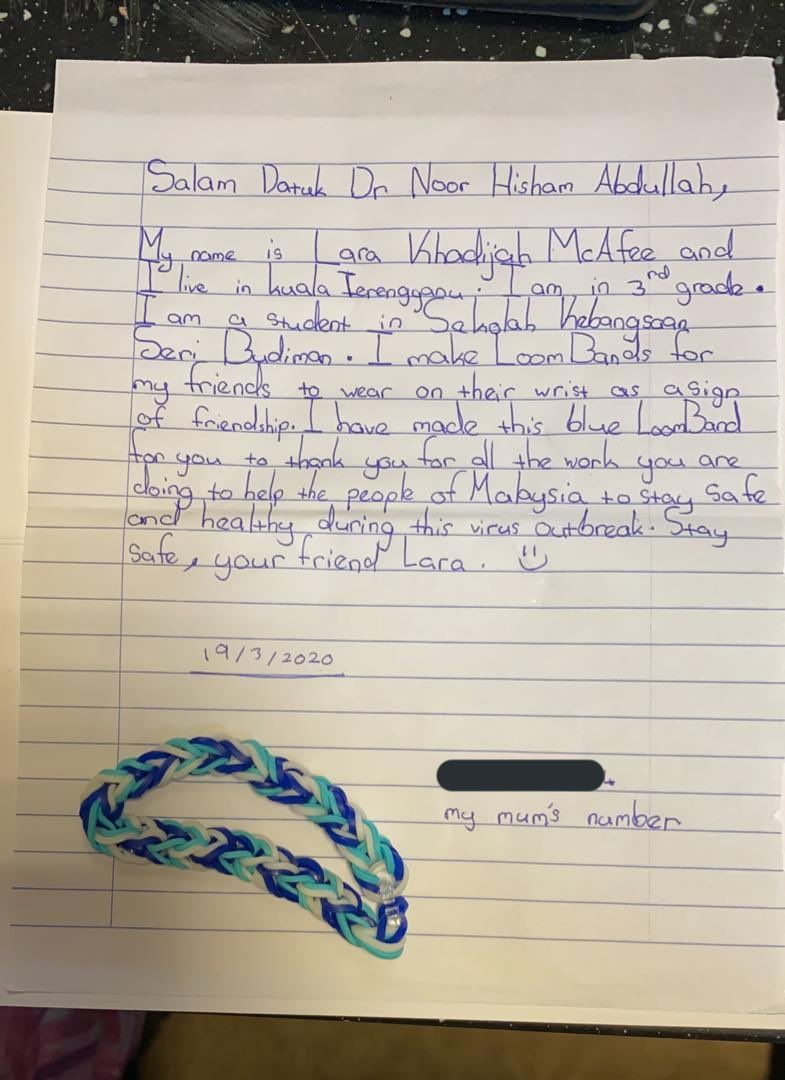 Salam Datuk Dr Noor Hisham Abdullah,
My name is Lara Khadijah McAfee and
I live in kuala Terengganu. I am in 3rd grade.
I am a student in Sekolah Kebangsaan
Seri Budiman. I make Loom Bands for
my friends to wear on their wrist as a sign
of friendship. I have made this blue LoomBand
for you to thank you for all the work you are
doing to help the people of Malaysia to stay safe
and healthy during this virus outbreak. Stay
safe, your friend Lara.
19/3/2020
my mum's number